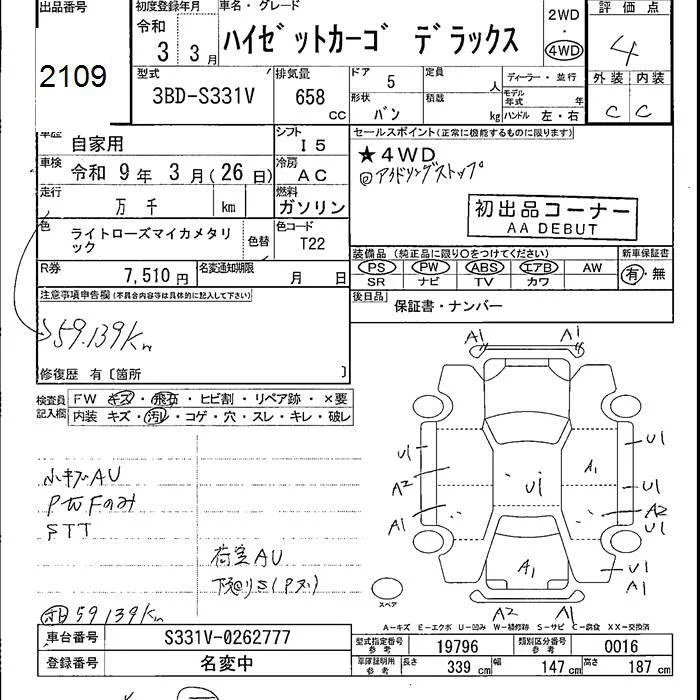 出品番号
2109
初度登録年月
令和
3 3月
車名・グレード
ハイゼットカーゴ デラックス
2WD
・
4WD
評価点
4
外装 内装
C C
型式
3BD-S331V
排気量
658 CC
ドア 5
形状 バン
定員 人
積載 kg
ディーラー・並行
モデル年式 年
ハンドル 左・右
車歴 自家用
シフト I5
車検 令和 9年 3月(26日)
冷房 AC
走行 万 千 km
燃料 ガソリン
色 ライトローズマイカメタリック
色替
色コード T22
R券 7,510円
名変通知期限 月 日
セールスポイント(正常に機能するものに限ります)
★4WD
◎アイドリングストップ
初出品コーナー
AA DEBUT
装備品(純正品に限り○をつけてください)
新車保証書
PS PW ABS エアB AW
SR ナビ TV カワ
有・無
後日品 保証書・ナンバー
注意事項申告欄(不具合内容等は具体的に記入して下さい)
59.139Km
修復歴 有〔箇所 〕
検査員記入欄
FW キズ・飛石・ヒビ割・リペア跡・×要
内装 キズ・汚レ・コゲ・穴・スレ・キレ・破レ
小キズAU
PWFのみ
STT
荷室AU
下廻りS(Pズ)
59139Km
A1 A1
U1 U1
A2 U1 A1 U1
A1 A2
U1
A1 U1
A1
A2 A1
スペア
A-キズ E-エクボ U-凹み W-補修跡 S-サビ C-腐食 XX-交換済
車台番号 S331V-0262777
登録番号 名変中
型式指定番号 参考 19796
類別区分番号 参考 0016
車庫証明用 参考 長さ 339cm 幅 147cm 高さ 187cm